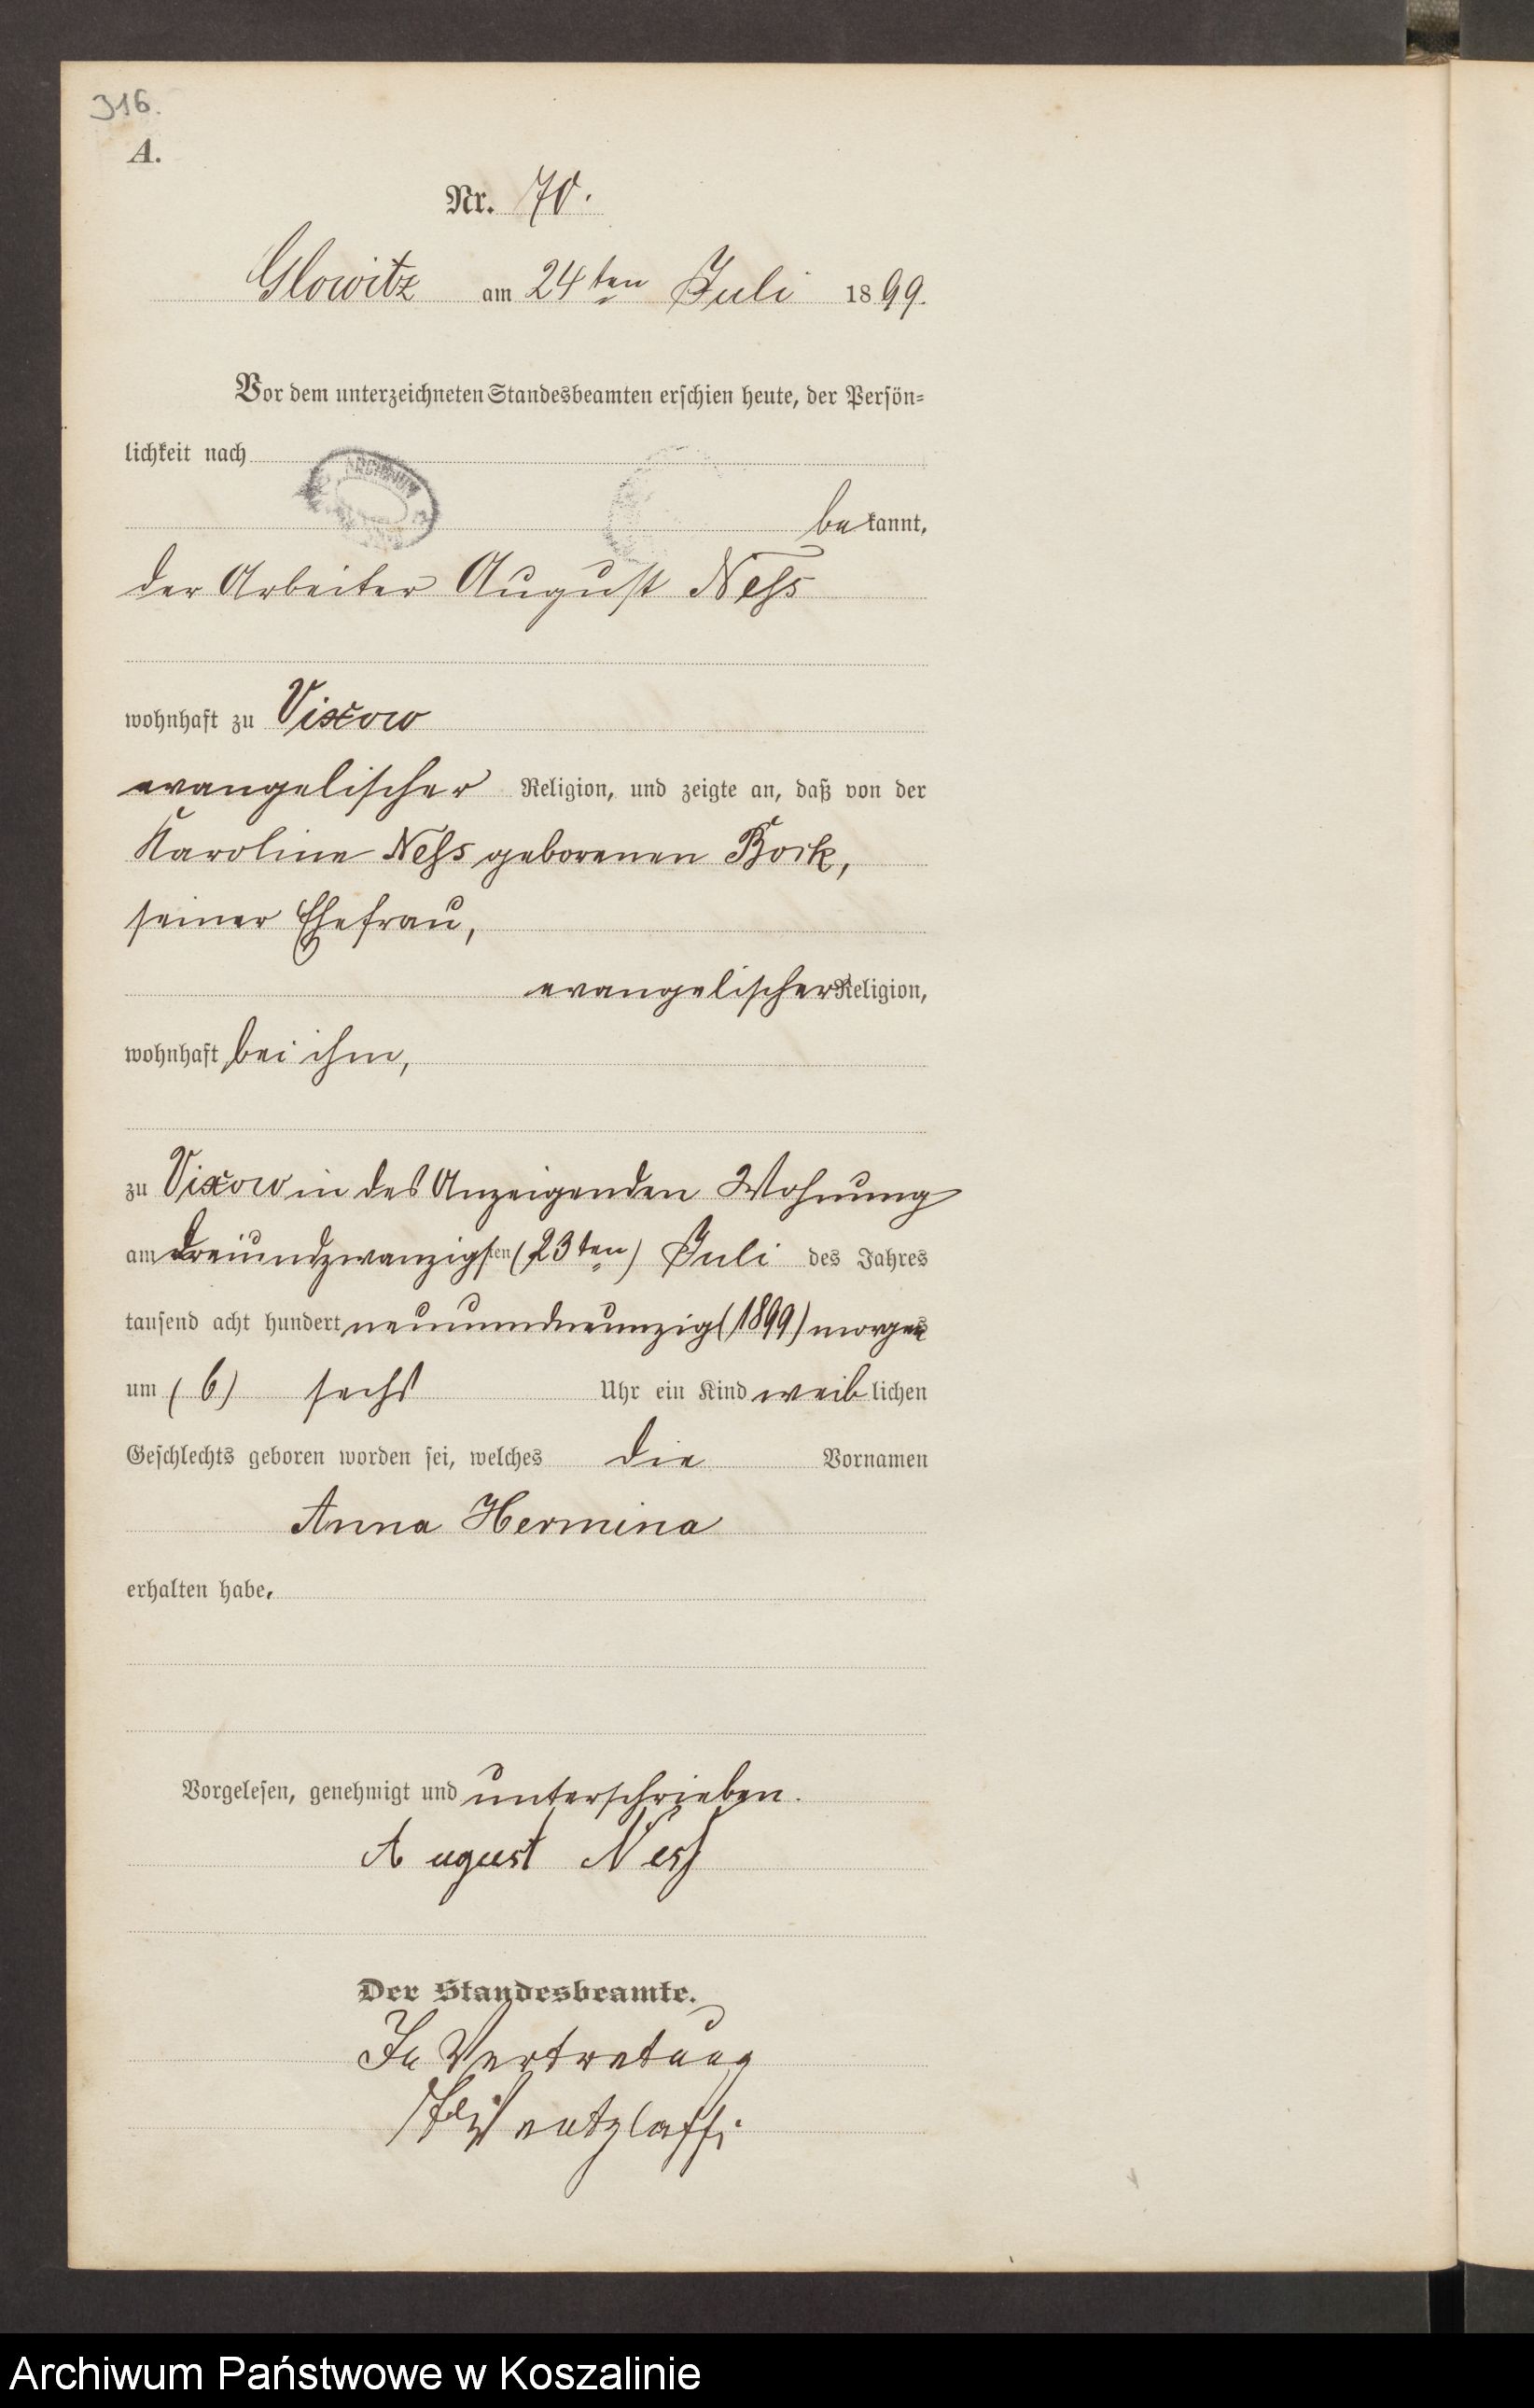 316.
A.
Nr. 70.
Glowitz am 24ten Juli 1899.
Vor dem unterzeichneten Standesbeamten erschien heute, der Persön-
lichkeit nach
ARCHIWUM
bekannt,
der Arbeiter August Neſs
wohnhaft zu Vixow
evangelischer Religion, und zeigte an, daß von der
Karoline Neſs geborenen Bock,
seiner Ehefrau,
evangelischer Religion,
wohnhaft bei ihm,
zu Vixow in des Anzeigenden Wohnung
am dreiundzwanzigsten (23ten) Juli des Jahres
tausend acht hundert neunundneunzig (1899) morgens
um (6) sechs Uhr ein Kind weiblichen
Geschlechts geboren worden sei, welches die Vornamen
Anna Hermina
erhalten habe.
Vorgelesen, genehmigt und unterschrieben.
August Nesſ
Der Standesbeamte.
In Vertretung
Archiwum Państwowe w Koszalinie